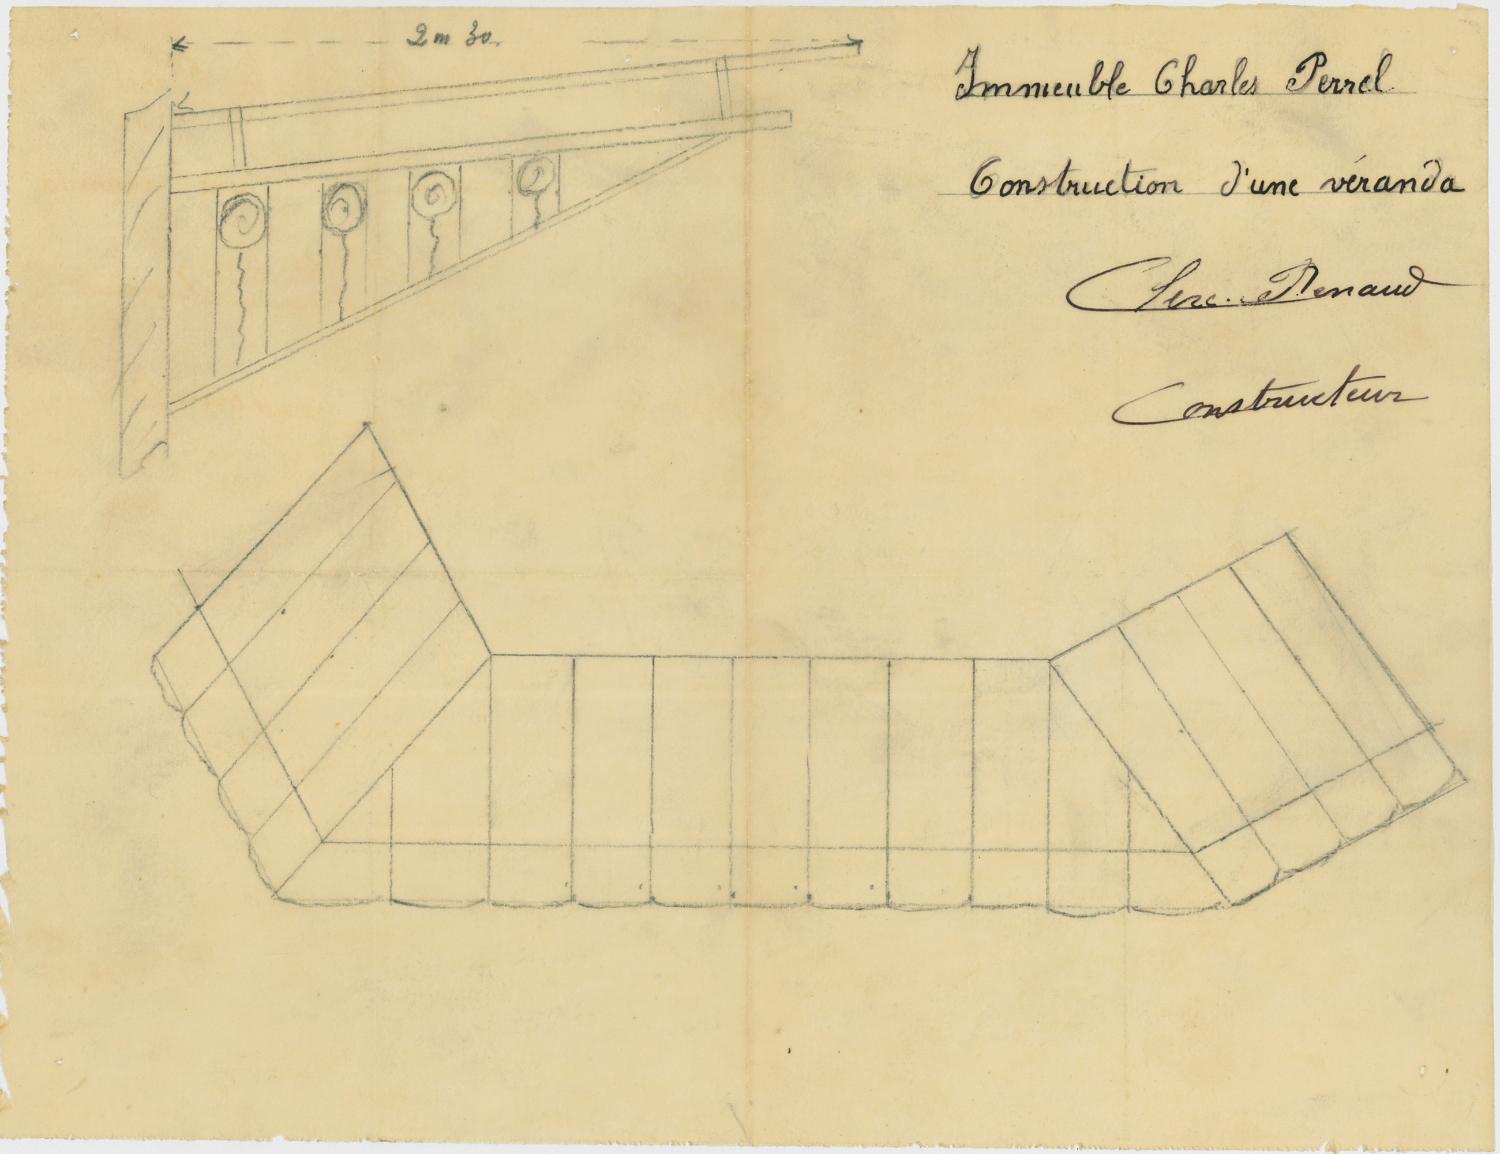 2 m 30.
Immeuble Charles Perrel
Construction d'une véranda
Clerc-Renaud
Constructeur